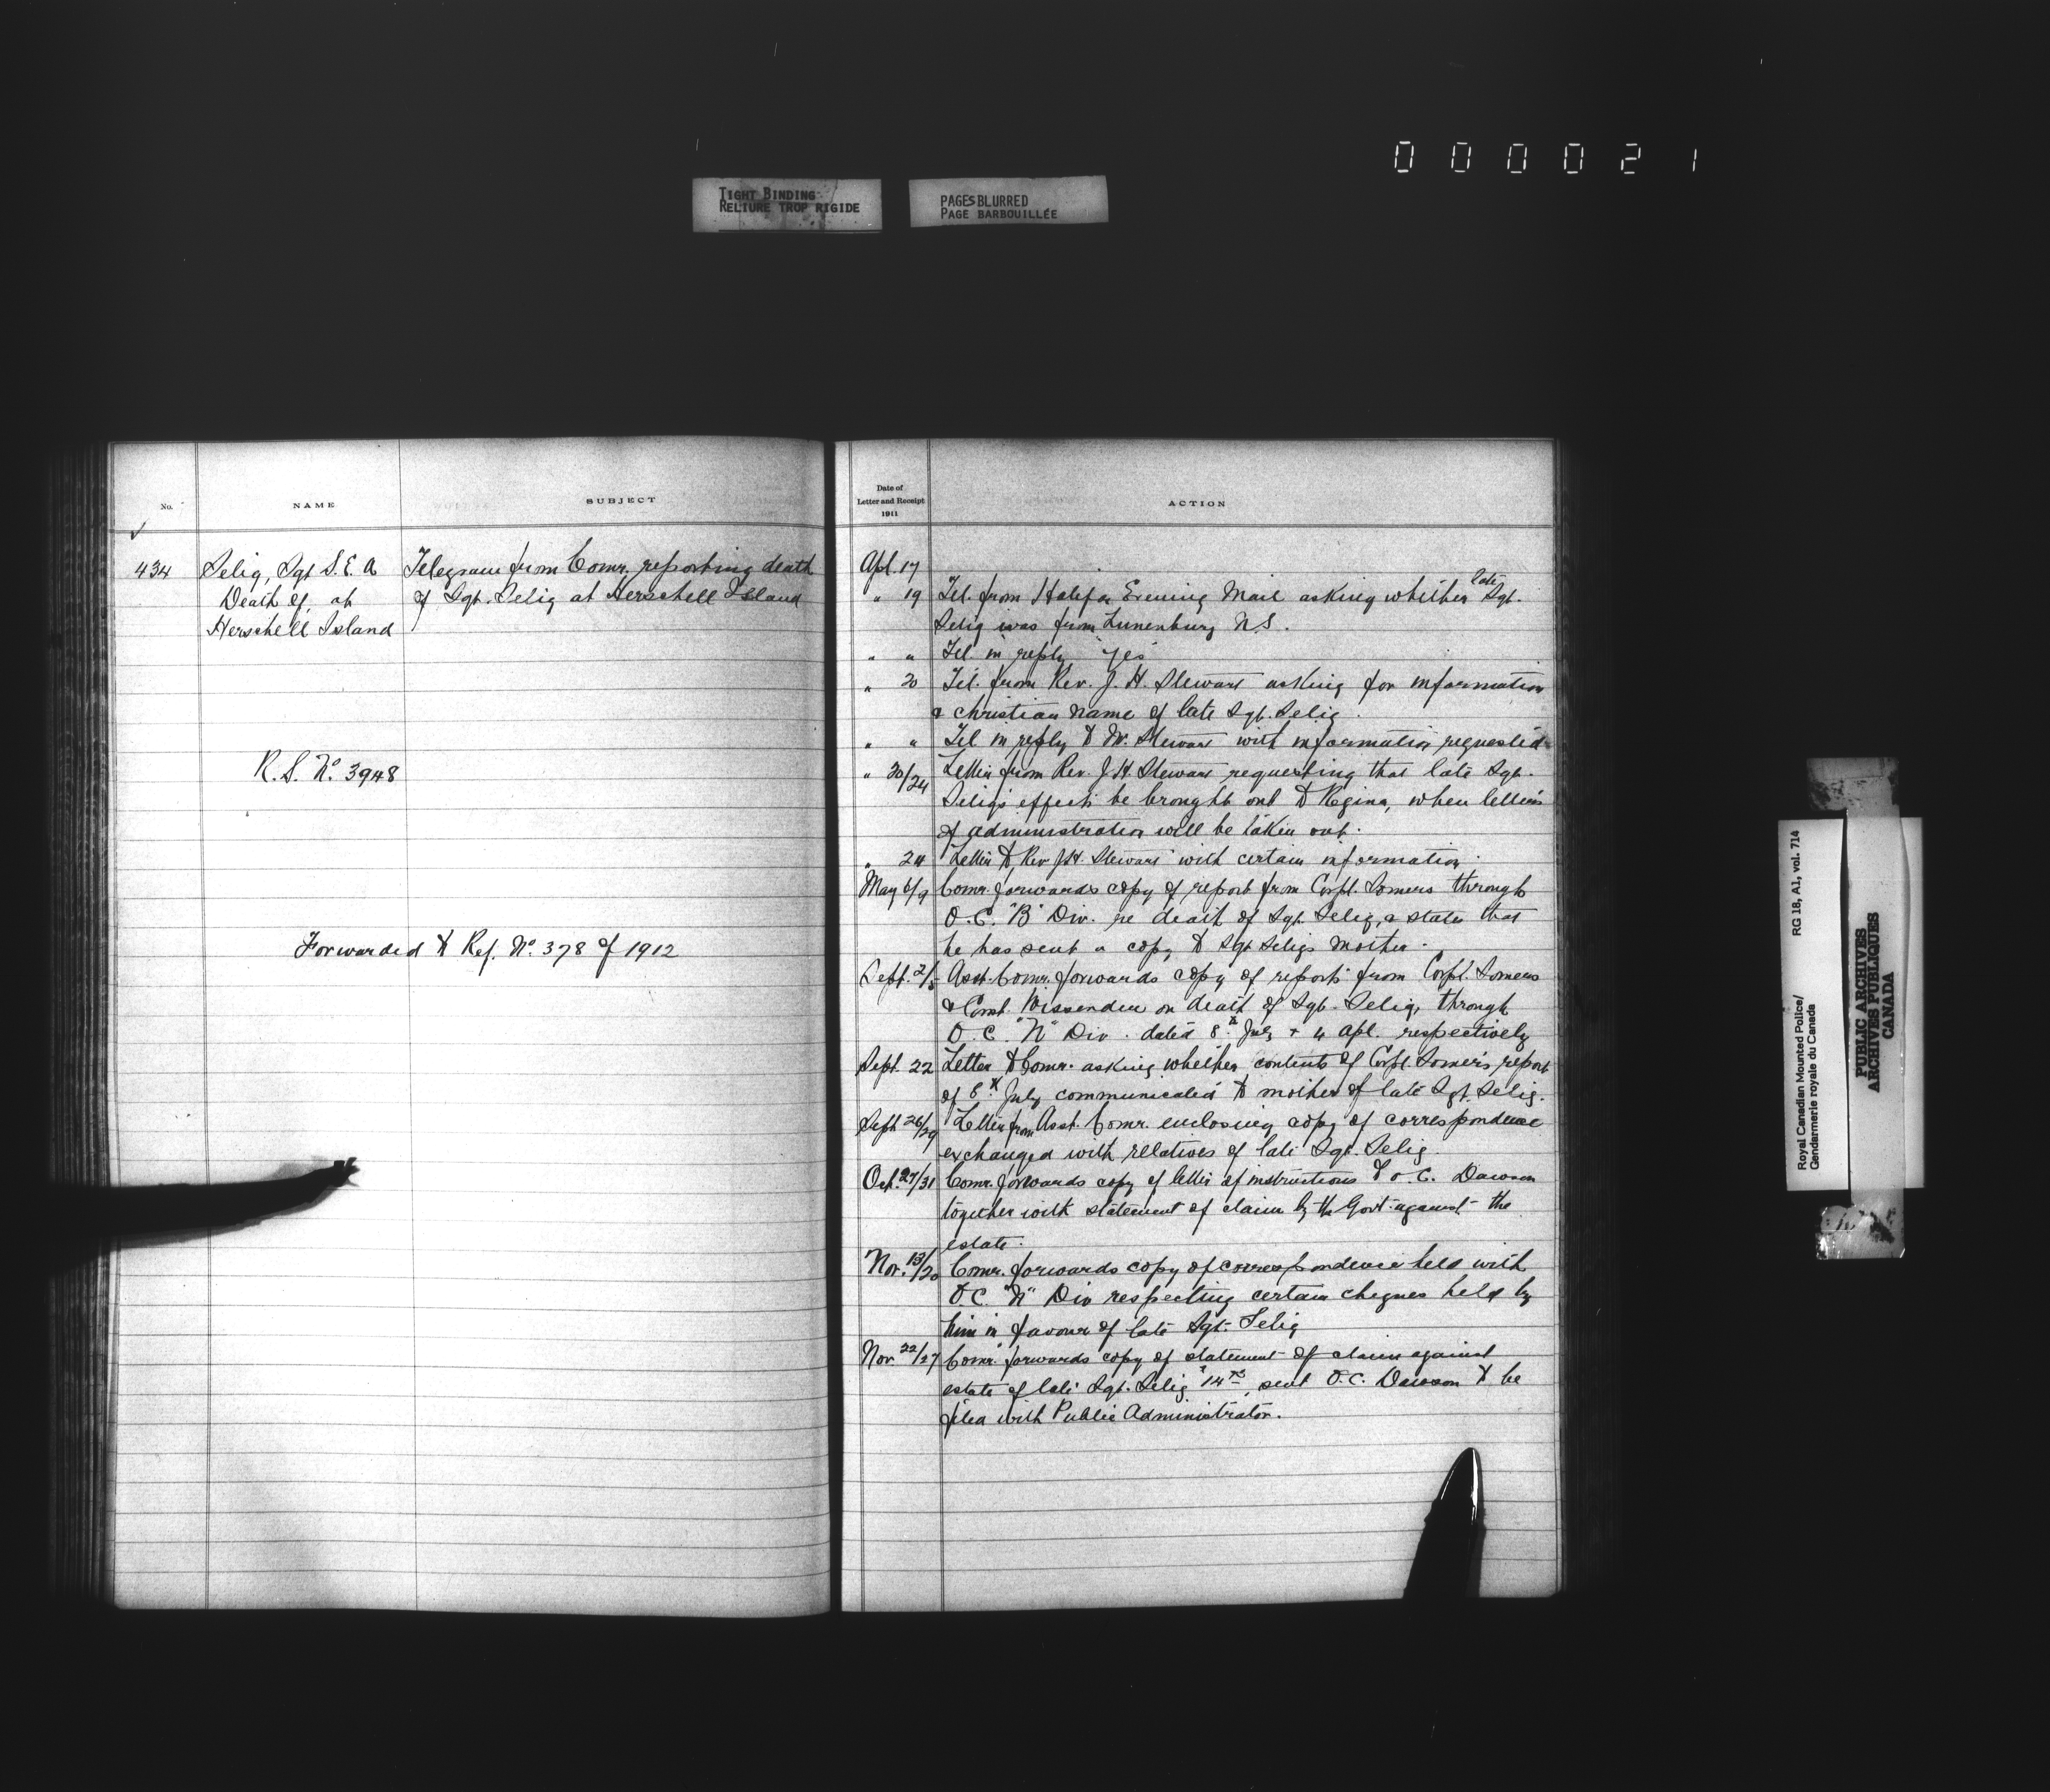 000021
TIGHT BINDING
RELIURE TROP RIGIDE
PAGES BLURRED
PAGE BARBOUILLÉE
No.
NAME
SUBJECT
434
Selig, Sgt S.E.A
Death of, at
Herschell Island
Telegram from Comr. reporting death
of Sgt. Selig at Herschell Island
R.S. No 3948
Forwarded to Ref. No. 378 of 1912
Date of
Letter and Receipt
1911
ACTION
Apl. 17
" 19 Tel. from Halifax Evening Mail asking whether late Sgt.
Selig was from Lunenburg N.S.
" " Tel. in reply "yes"
" 20 Tel. from Rev. J. H. Stewart asking for information
& christian name of late Sgt. Selig.
" " Tel in reply to Mr. Stewart with information requested
" 20/24 Letter from Rev. J. H. Stewart requesting that late Sgt.
Selig's effects be brought out to Regina, when letters
of administration will be taken out.
" 24 Letter to Rev J.H. Stewart with certain information.
May 6/9 Comr. forwards copy of report from Corpl. Somers through
O.C. "B" Div. re death of Sgt. Selig, & states that
he has sent a copy to Sgt Seligs mother.
Sept. 2/ Asst. Comr. forwards copy of reports from Corpl. Somers
& Const. Wissenden on death of Sgt. Selig, through
O.C. "N" Div. dated 8th July & 4 Apl. respectively
Sept. 22 Letter to Comr. asking whether contents of Corpl. Somers report
of 8th July communicated to mother of late Sgt. Selig.
Sept 26/29 Letter from Asst. Comr. enclosing copy of correspondence
exchanged with relatives of late Sgt. Selig.
Oct. 27/31 Comr. forwards copy of letter of instructions to O.C. Dawson
together with statement of claim by the Govt. against the
estate.
Nov. 13/20 Comr. forwards copy of correspondence held with
O.C. "N" Div respecting certain cheques held by
him in favour of late Sgt. Selig
Nov 22/27 Comr. forwards copy of statement of claim against
estate of late Sgt. Selig sent O.C. Dawson to be
filed with Public Administrator.
Royal Canadian Mounted Police/
Gendarmerie royale du Canada
RG 18, A1, vol. 714
PUBLIC ARCHIVES
ARCHIVES PUBLIQUES
CANADA